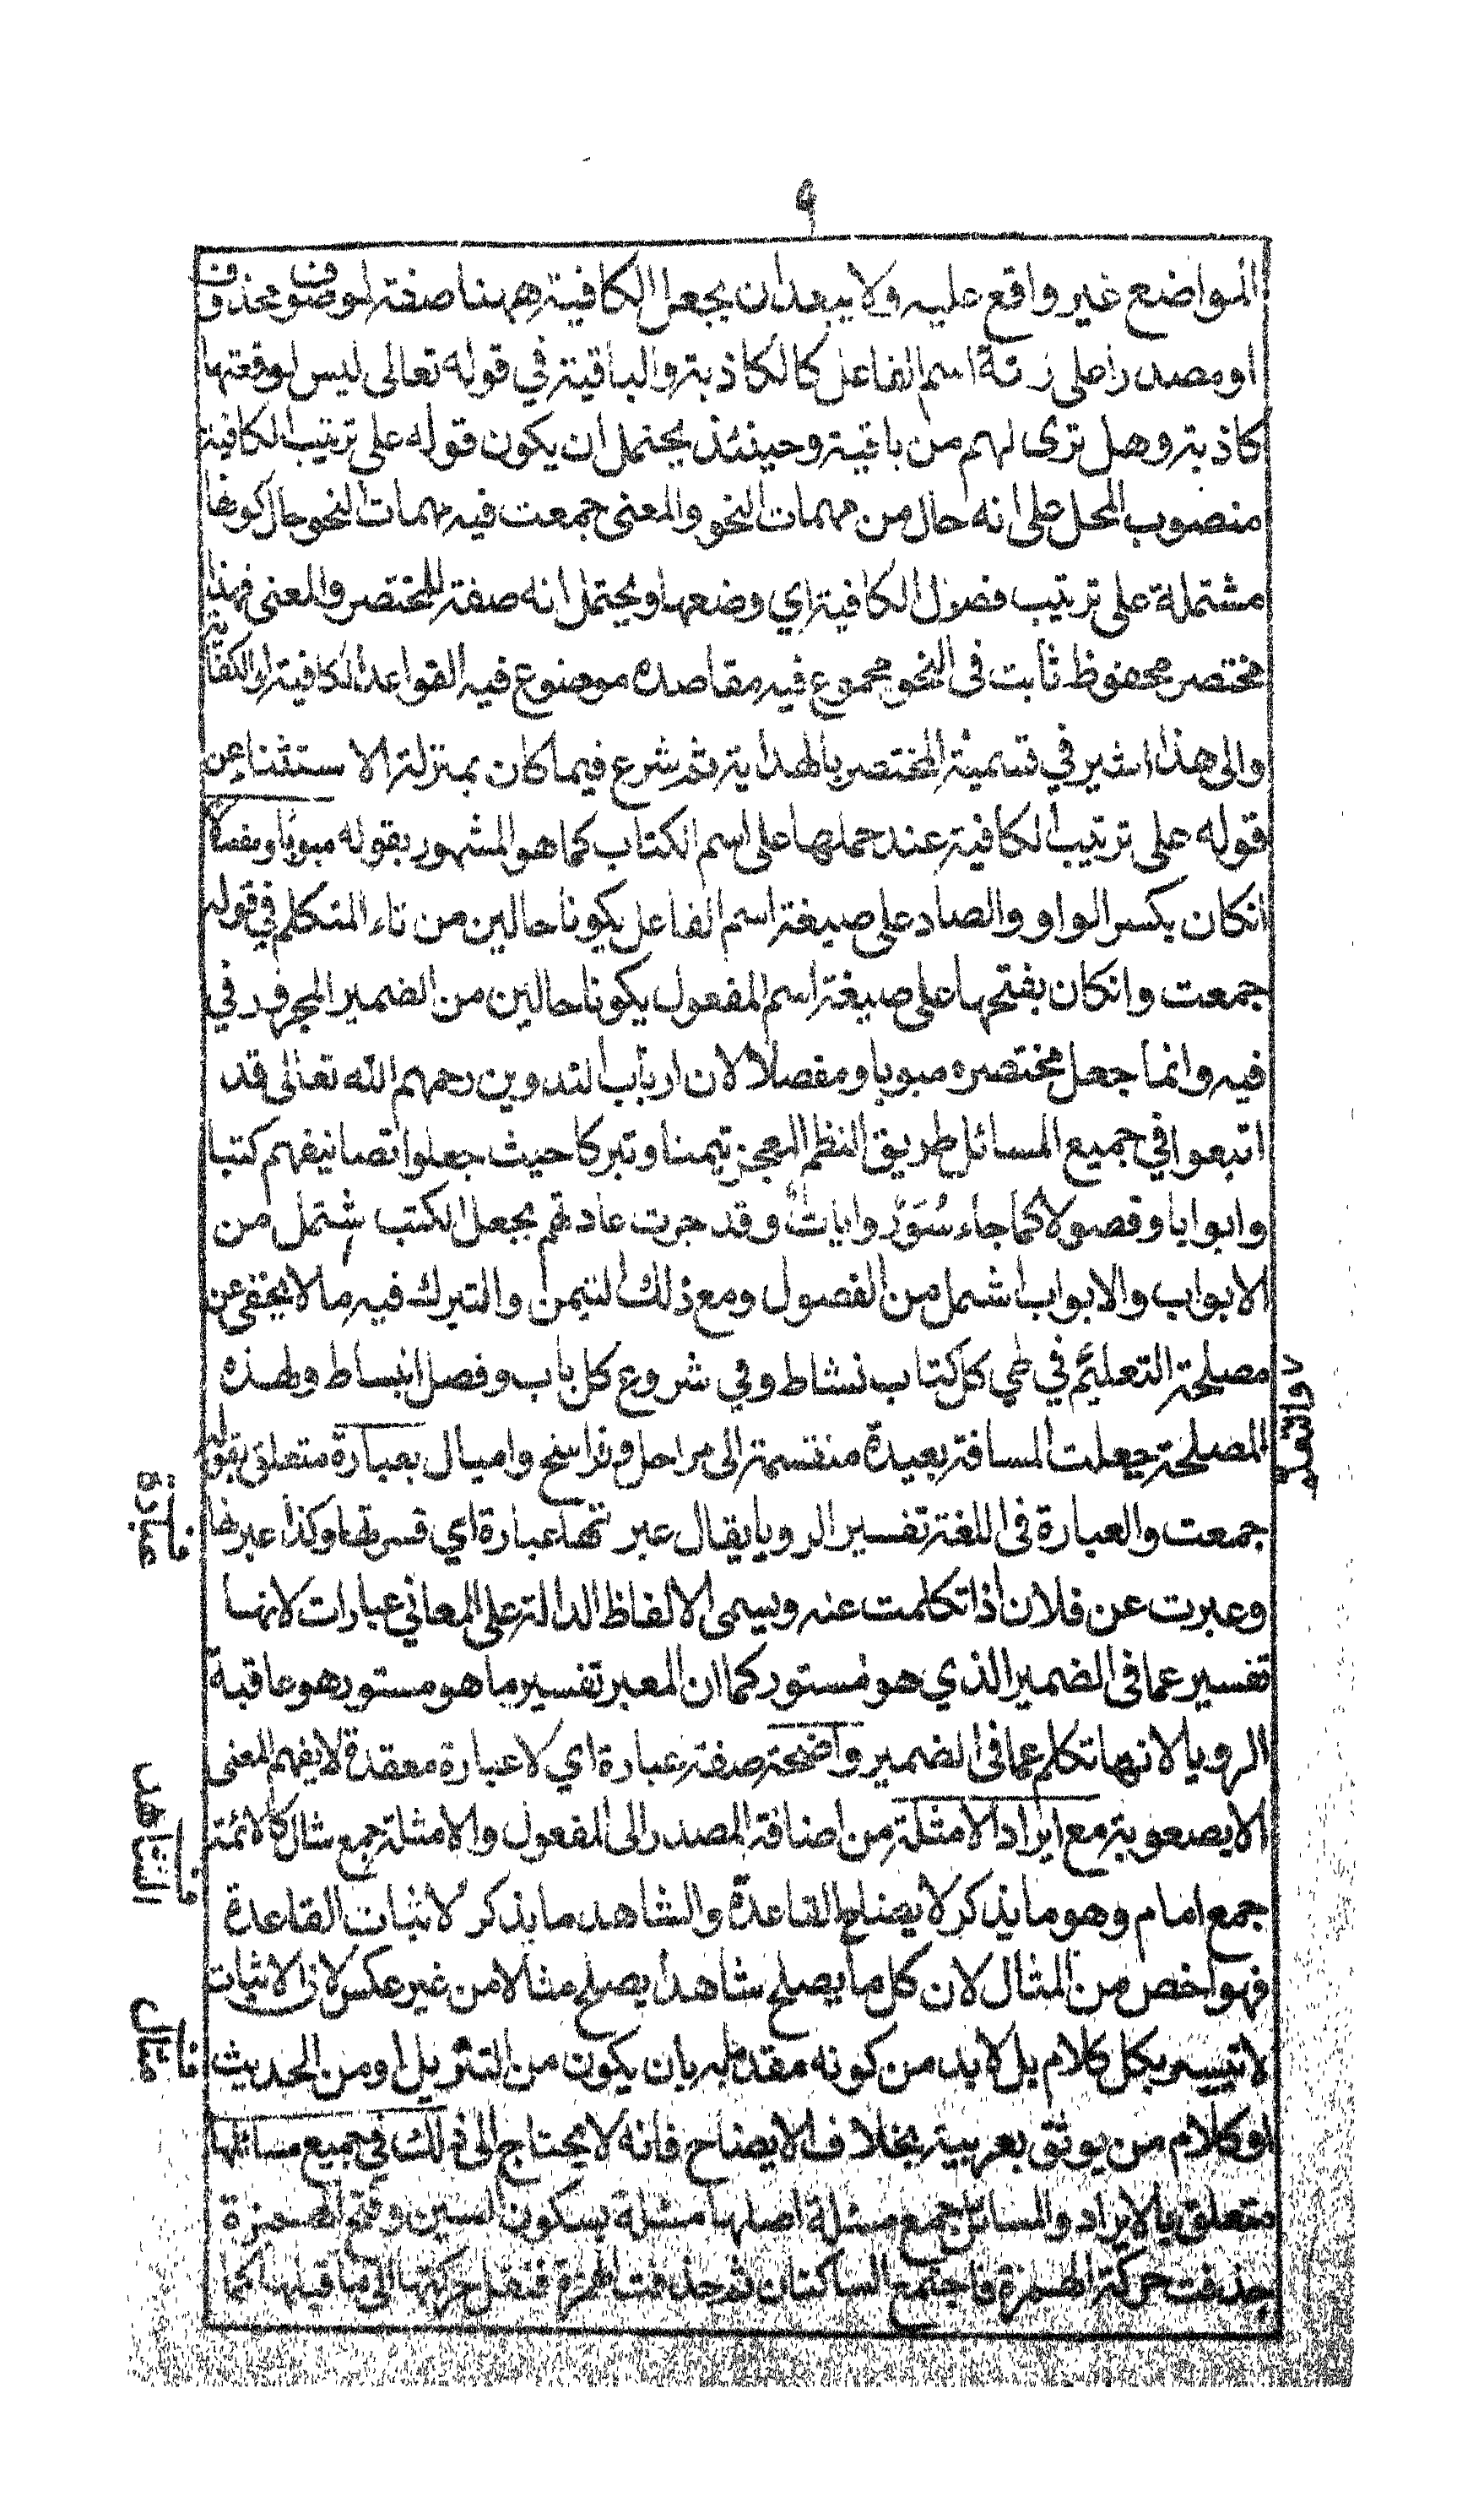 ٩
المواضع غير واقع عليه ولا يبعد ان يجعل الكافية ههنا صفة لموصوف محذوف
او مصدرا على زنة اسم الفاعل كالكاذبة والباقية في قوله تعالى ليس لوقعتها
كاذبة وهل ترى لهم من باقية وحينئذ يحتمل ان يكون قوله على ترتيب الكافية
منصوب المحل على انه حال من مهمات النحو والمعنى جمعت فيه مهمات النحو حال كونها
مشتملة على ترتيب فصول الكافية اي وضعها ويحتمل انه صفة للمختصر والمعنى فهذا
مختصر محفوظ ثابت فى النحو مجموع فيه مقاصده موضوع فيه القواعد الكافية او الكفاية
والى هذا اشير في تسمية المختصر بالهداية ثم شرع فيما كان بمنزلة الاستثناء عن
قوله على ترتيب الكافية عند حملها على اسم الكتاب كما هو المشهور بقوله مبوبا ومفصلا
انكان بكسر الواو والصاد على صيغة اسم الفاعل يكونا حالين من تاء المتكلم في قوله
جمعت وانكان بفتحها على صيغة اسم المفعول يكونا حالين من الضمير المجرور في
فيه وانما جعل مختصره مبوبا ومفصلا لان ارباب التدوين رحمهم الله تعالى قد
اتبعوا في جميع المسائل طريق النظم المعجز تيمنا وتبركا حيث جعلوا تصانيفهم كتبا
وابوابا وفصولا كما جاء سُوَرٌ واياتٌ وقد جرت عادتهم بجعل الكتب اشتمل من
الابواب والابواب اشمل من الفصول ومع ذلك التيمن والتبرك فيه ما لا يخفى عن
مصلحة التعليم في طي كل كتاب نشاط وفي شروع كل باب وفصل انبساط ولهذه
المصلحة جعلت المسافة بعيدة منقسمة الى مراحل وفراسخ واميال بعبارة متعلق بقوله
جمعت والعبارة فى اللغة تفسير الرويا يقال عبرتها عبارة اي فسرتها وكذا عبرتها
وعبرت عن فلان اذا تكلمت عنه ويسمى الالفاظ الدالة على المعاني عبارات لانها
تفسير عما فى الضمير الذي هو مستور كما ان المعبر تفسير ما هو مستور هو عاقبة
الرويا لانها تكلم عما فى الضمير واضحة صفة عبارة اي لا عبارة معقدة لا يفهم المعنى
الا بصعوبة مع ايراد الامثلة من اضافة المصدر الى المفعول والامثلة جمع مثال كالائمة
جمع امام وهو ما يذكر لايضاح القاعدة والشاهد ما يذكر لاثبات القاعدة
فهو اخص من المثال لان كل ما يصلح شاهدا يصلح مثالا من غير عكس لان الاثبات
لا تيسر بكل كلام بل لا بد من كونه مقدما به بان يكون من التنزيل او من الحديث
او كلام من يوثق بعربية بخلاف الايضاح فانه لا يحتاج الى ذلك في جميع مسائلها
متعلق بالايراد والمسائل جمع مسئلة اصلها مسئلة بسكون السين وفتح الهمزة
حذفت حركة الهمزة فاجتمع الساكنان ثم حذفت الهمزة فنقل حركتها الى ما قبلها كما